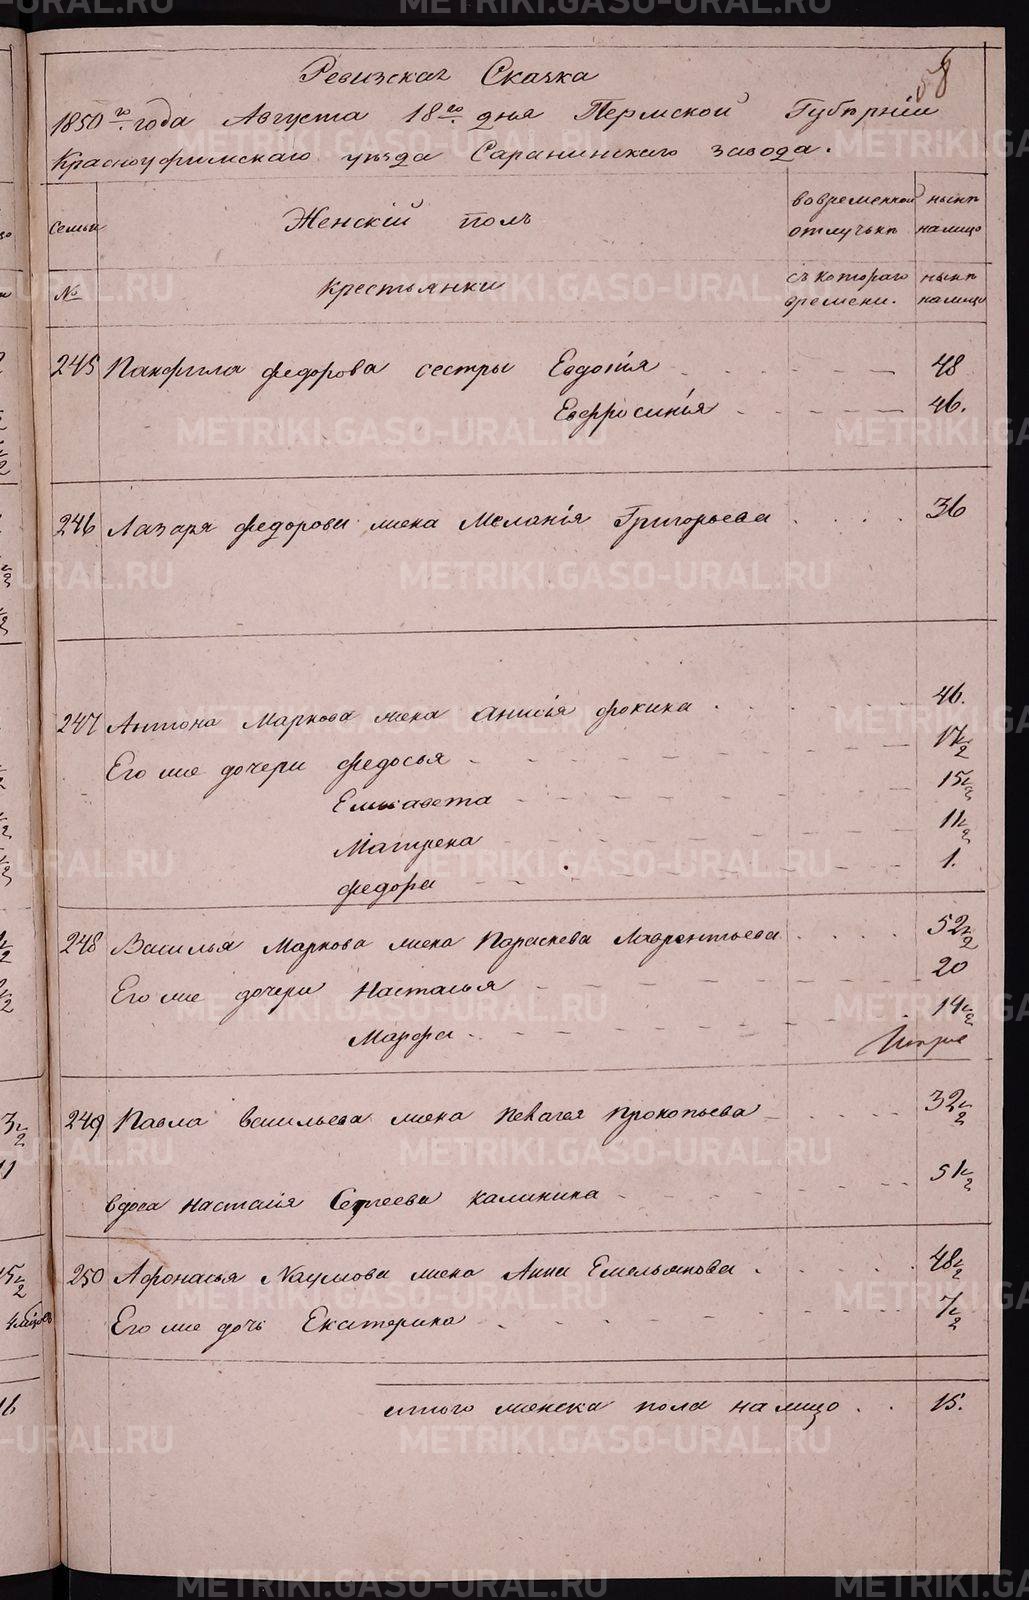 58
Ревизская Сказка
1850го года Августа 18го дня Пермской Губернiи
Красноуфимскаго уезда Саранинскаго завода.
семьи Женскiй полъ во временной отлучке ныне на лицо
№ Крестьянки съ котораго времени. ныне на лицо
245 Панфила Федорова сестры Евдокiя 48
Евфросинiя 46.
246 Лазаря Федорова жена Меланiя Григорьева 36
247 Антона Маркова жена Анисiя Фокина 46.
Его же дочери Федосья 17 1/2
Елисавета 15 1/2
Матрена 11 1/2
Федора 1.
248 Василья Маркова жена Параскева Лаврентьева 52 1/2
Его же дочери Наталья 20
Марфа 14 1/2
249 Павла Васильева жена Пелагея Прокопьева 32 1/2
вдова Насталiя Сергеева Калинина 51 1/2
250 Афонасья Наумова жена Анна Емельянова 48 1/2
Его же дочь Екатерина 7 1/2
итого женска пола на лицо 15.
METRIKI.GASO-URAL.RU